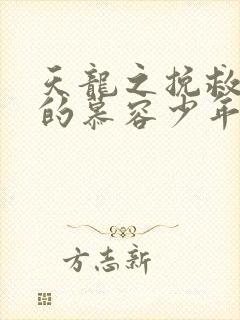 天龍之挽救
的慕容少年
方志新